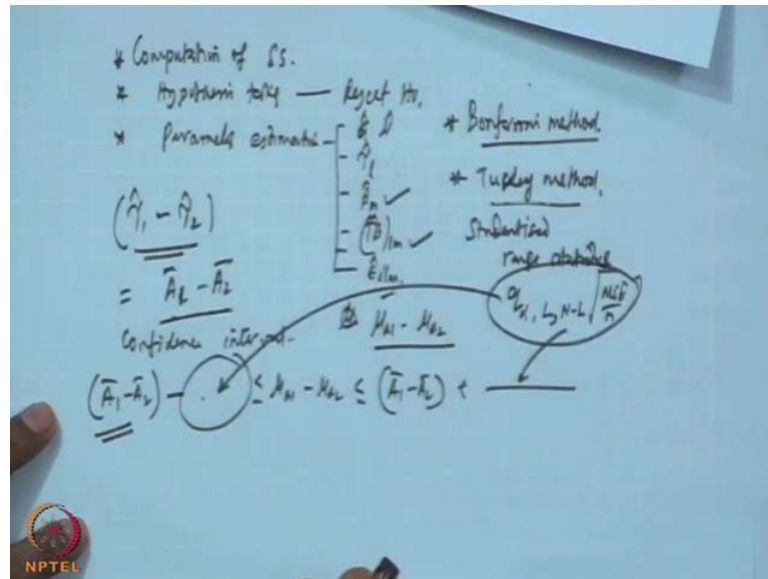 * Computation of SS.
* Hypothesis testing — Reject H0.
* Parameter estimation
τ̂l
β̂m ✓
(τ̂β)lm ✓
ε̂ilm
* Bonferroni method.
* Tukey method.
Studentized
range statistic
qα, L, N-L √MSE/n
(τ̂1 - τ̂2)
= Ā1 - Ā2
μA1 - μA2
Confidence interval.
(Ā1-Ā2) - . ≤ μA1 - μA2 ≤ (Ā1-Ā2) +
NPTEL